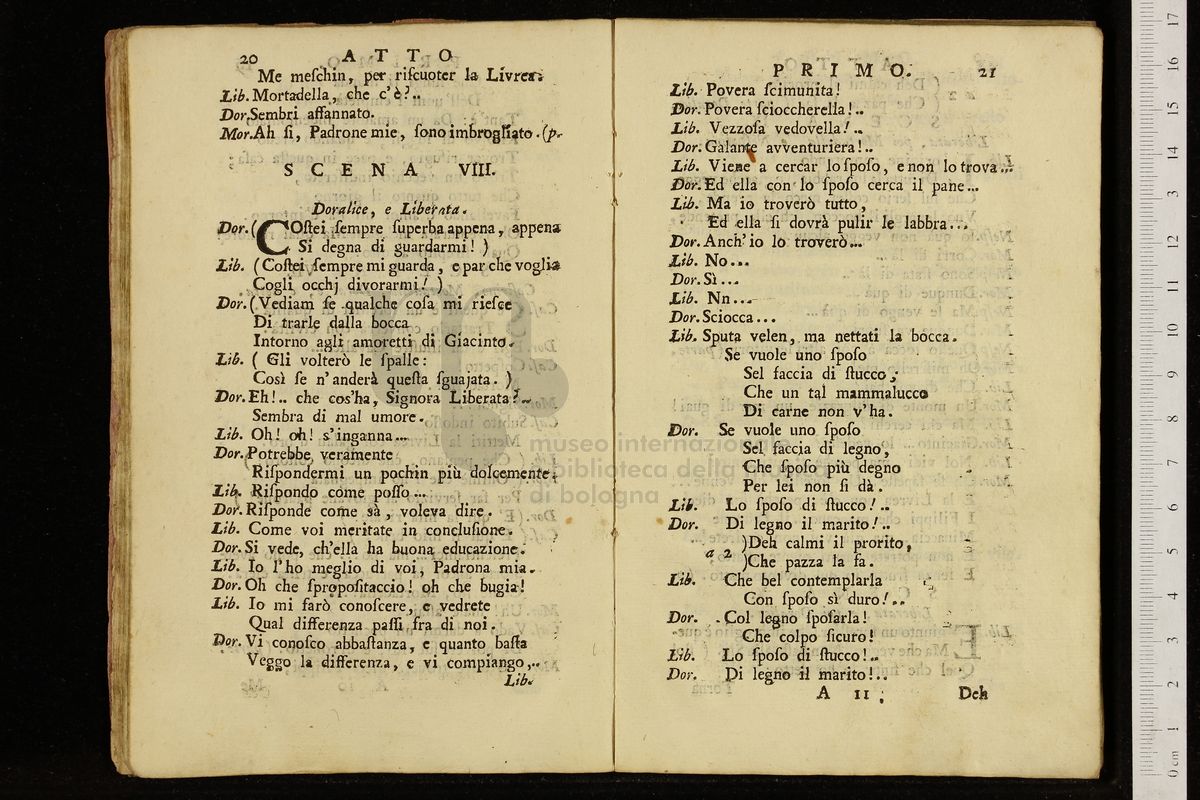 20 ATTO
Me meſchin, per riſcuoter la Livrea.
Lib. Mortadella, che c'è?..
Dor. Sembri affannato.
Mor. Ah ſi, Padrone mie, ſono imbrogliato. (p.
SCENA VIII.
Doralice, e Liberata.
Dor. (COſtei ſempre ſuperba appena, appena
Si degna di guardarmi! )
Lib. (Coſtei ſempre mi guarda, e par che voglia
Cogli occhj divorarmi! )
Dor. (Vediam ſe qualche coſa mi rieſce
Di trarle dalla bocca
Intorno agli amoretti di Giacinto.
Lib. ( Gli volterò le ſpalle:
Così ſe n'anderà queſta ſguajata. )
Dor. Eh!.. che cos'ha, Signora Liberata?..
Sembra di mal umore.
Lib. Oh! oh! s'inganna...
Dor. Potrebbe veramente
Riſpondermi un pochin più dolcemente.
Lib. Riſpondo come poſſo...
Dor. Riſponde come sà, voleva dire.
Lib. Come voi meritate in concluſione.
Dor. Si vede, ch'ella ha buona educazione.
Lib. Io l'ho meglio di voi, Padrona mia.
Dor. Oh che ſpropoſitaccio! oh che bugia!
Lib. Io mi farò conoſcere, e vedrete
Qual differenza paſſi fra di noi.
Dor. Vi conoſco abbaſtanza, e quanto baſta
Veggo la differenza, e vi compiango,..
Lib.
PRIMO. 21
Lib. Povera ſcimunita!
Dor. Povera ſcioccherella!..
Lib. Vezzoſa vedovella!..
Dor. Galante avventuriera!..
Lib. Viene a cercar lo ſpoſo, e non lo trova...
Dor. Ed ella con lo ſpoſo cerca il pane...
Lib. Ma io troverò tutto,
Ed ella ſi dovrà pulir le labbra...
Dor. Anch'io lo troverò...
Lib. No...
Dor. Sì...
Lib. Nn...
Dor. Sciocca...
Lib. Sputa velen, ma nettati la bocca.
Se vuole uno ſpoſo
Sel faccia di ſtucco;
Che un tal mammalucco
Di carne non v'ha.
Dor. Se vuole uno ſpoſo
Sel faccia di legno,
Che ſpoſo più degno
Per lei non ſi dà.
Lib. Lo ſpoſo di ſtucco!..
Dor. Di legno il marito!..
a 2 )Deh calmi il prorito,
)Che pazza la fa.
Lib. Che bel contemplarla
Con ſpoſo sì duro!..
Dor. Col legno ſpoſarla!
Che colpo ſicuro!
Lib. Lo ſpoſo di ſtucco!..
Dor. Di legno il marito!..
A 11 ; Deh
museo internazionale
biblioteca della musica
di bologna